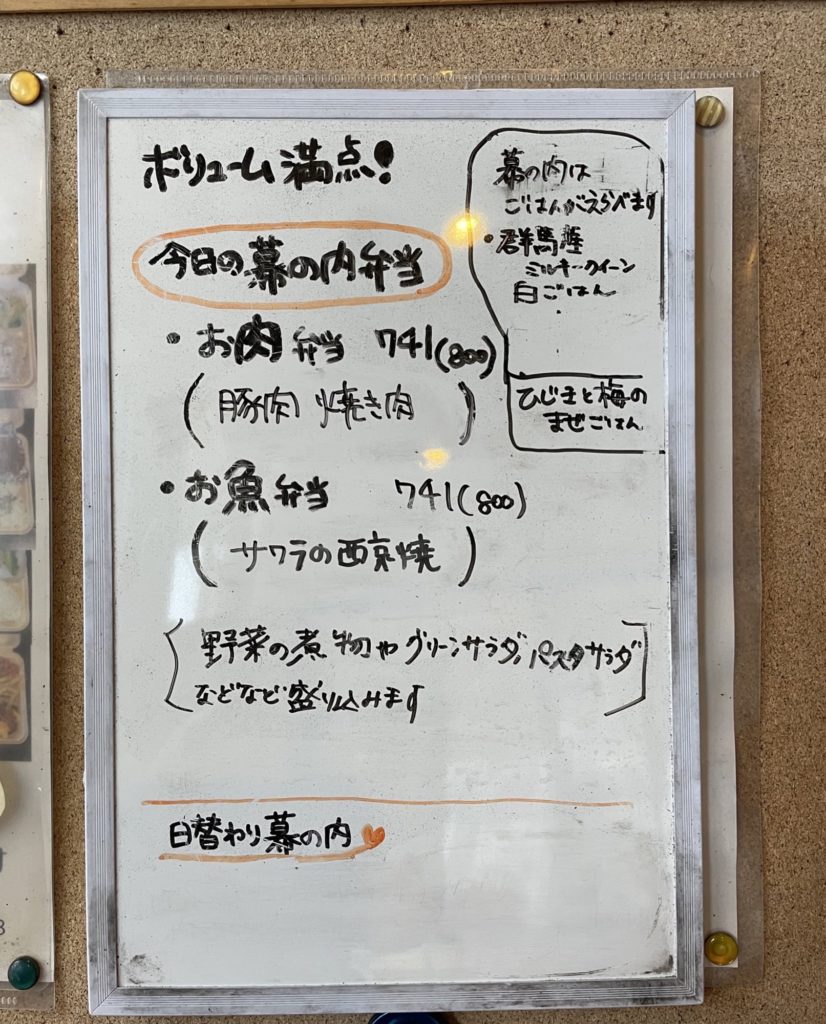 ボリューム満点!
今日の幕の内弁当
・お肉弁当 741(800)
(豚肉 焼き肉)
・お魚弁当 741(800)
(サワラの西京焼)
野菜の煮物やグリーンサラダ,パスタサラダ
などなど盛り込みます
日替わり幕の内
幕の内は
ごはんがえらべます
・群馬産
ミルキークイーン
白ごはん
ひじきと梅の
まぜごはん